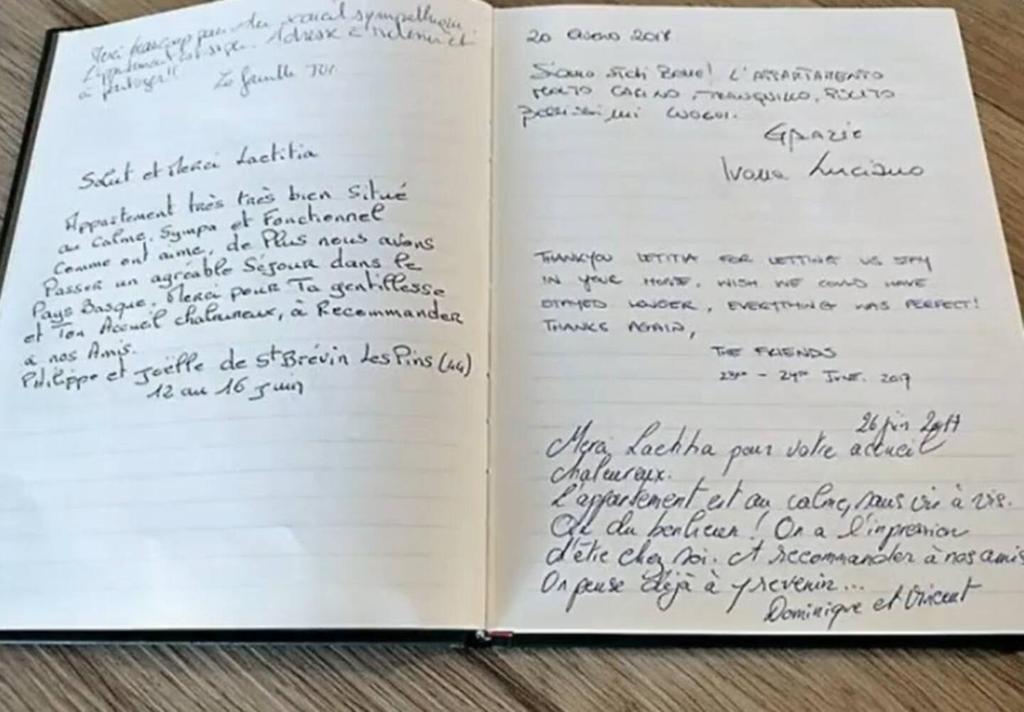 Merci beaucoup pour
sympathique
L'appartement est super. Adresse à retenir et
à partager!!
La famille
Salut et Merci Laetitia
Appartement très très bien Situé
au Calme, Sympa et Fonctionnel
Comme ont aime, de Plus nous avons
Passer un agréable Séjour dans le
Pays Basque. Merci pour Ta gentillesse
et Ton Accueil chaleureux, à Recommander
à nos Amis.
Philippe et Joëlle de St Brévin Les Pins (44)
12 au 16 Juin
20
Siamo stati Bene! L'APPARTAMENTO
MOLTO CARINO, TRANQUILLO,
bellissimi LUOGHI.
Grazie
Ivana Luciano
THANKYOU LETITIA FOR LETTING US STAY
IN YOUR HOME, WISH WE COULD HAVE
STAYED LONGER, EVERYTHING WAS PERFECT!
THANKS AGAIN,
THE FRIENDS
23RD - 24TH JUNE. 2017
26 juin 2017
Merci Laetitia pour votre accueil
chaleureux.
L'appartement est au calme, sans vis à vis.
Que du bonheur! On a l'impression
d'être chez soi. A recommander à nos amis
On pense déjà à y revenir...
Dominique et Vincent